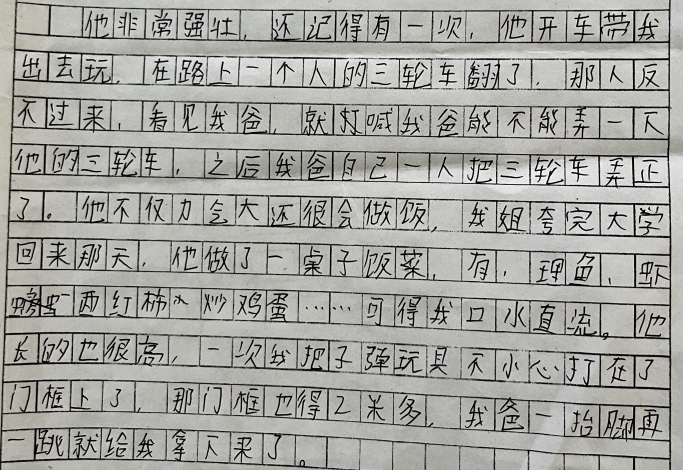 他非常强壮，还记得有一次，他开车带我
出去玩，在路上一个人的三轮车翻了，那人反
不过来，看见我爸，就打喊我爸能不能弄一下
他的三轮车，之后我爸自己一人把三轮车弄正
了。他不仅力气大还很会做饭，我姐考完大学
回来那天，他做了一桌子饭菜，有，理鱼、虾
西红柿炒鸡蛋……可得我口水直流。他
长的也很高，一次我把子弹玩具不小心打在了
门框上了，那门框也得2米多，我爸一抬脚再
一跳就给我拿下来了。